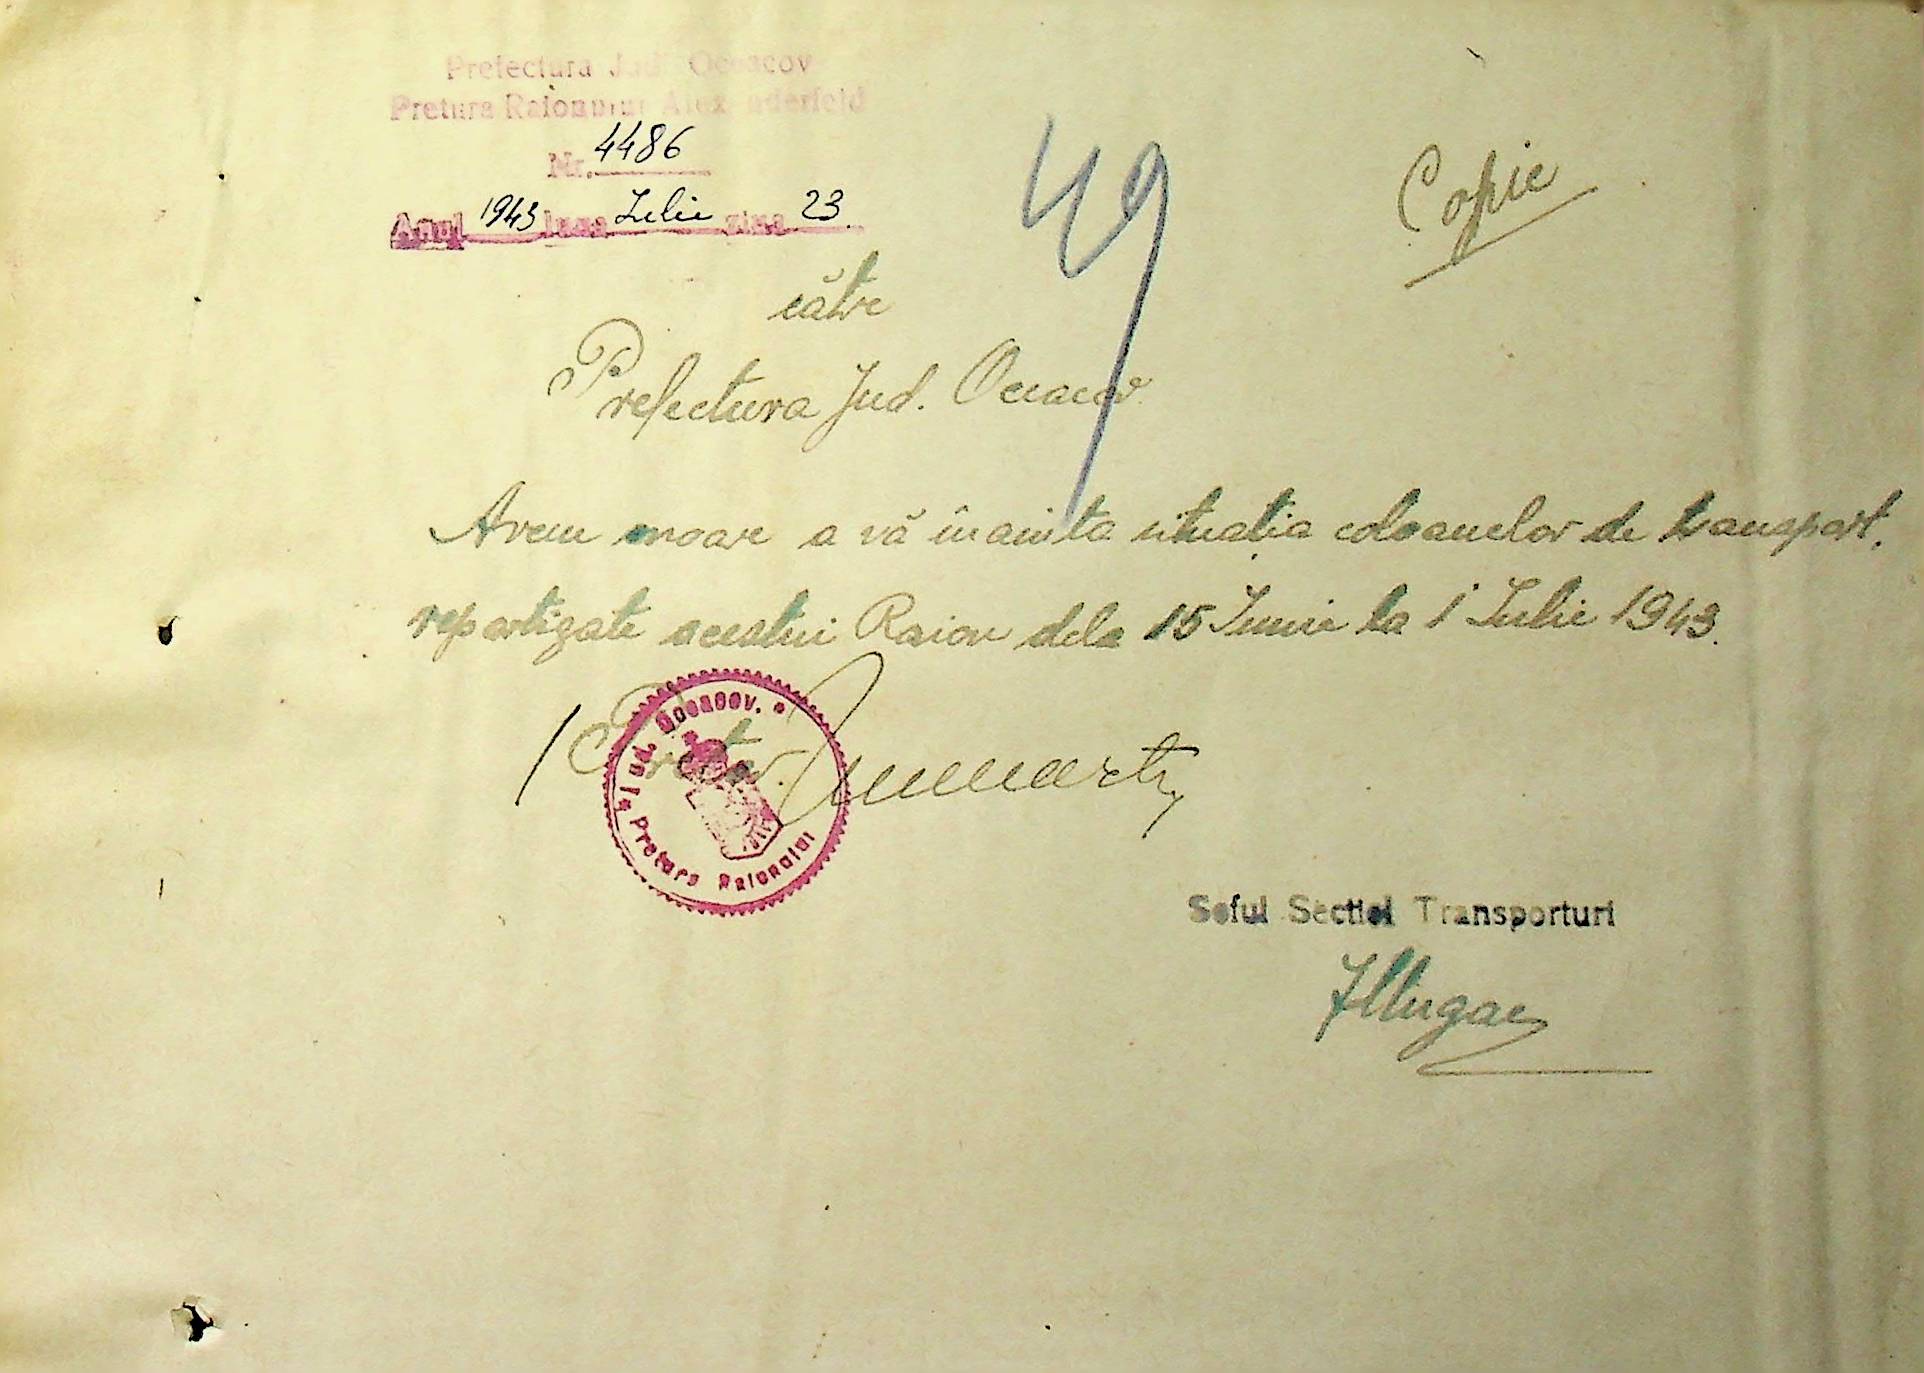 Prefectura Jud. Oceacov
Pretura Raionului Alexanderfeld
Nr. 4486
Anul 1943 luna Iulie ziua 23
49
Copie
către
Prefectura Jud. Oceacov
Avem onoare a vă înainta situatia coloanelor de transport,
repartizate acestui Raion dela 15 Iunie la 1 Iulie 1943.
Pretor.
Jud. Oceacov.
Pretura Raionului
Seful Sectiei Transporturi